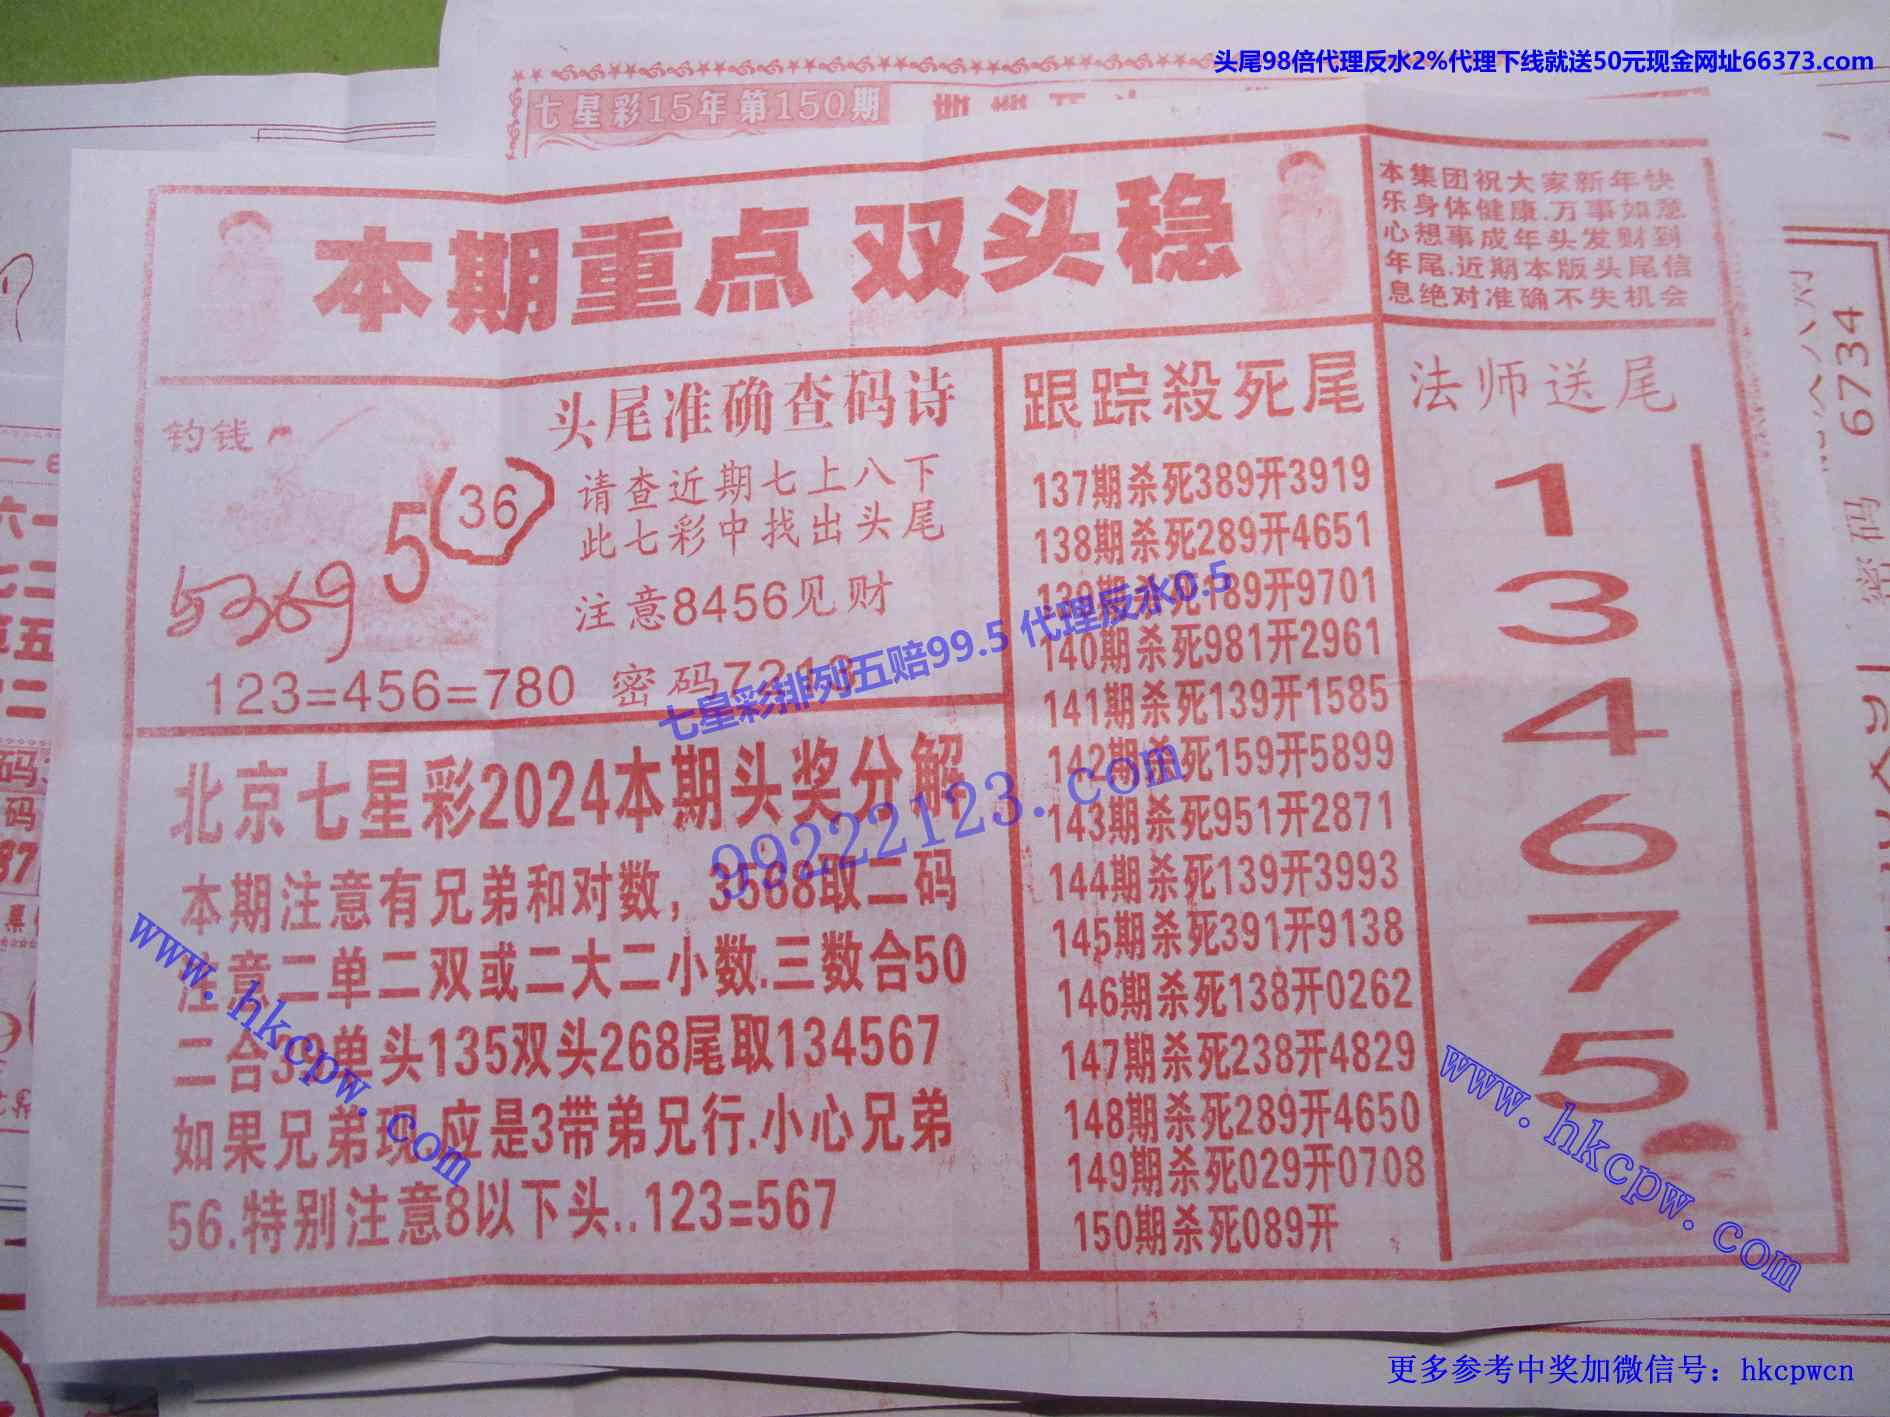 头尾98倍代理反水2%代理下线就送50元现金网址66373.com
七星彩15年第150期
本期重点 双头稳
本集团祝大家新年快
乐身体健康.万事如意
心想事成年头发财到
年尾.近期本版头尾信
息绝对准确不失机会
钓钱
5
36
5369
头尾准确查码诗
请查近期七上八下
此七彩中找出头尾
注意8456见财
123=456=780 密码
七星彩排列五赔99.5 代理反水0.5
99222123.com
北京七星彩2024本期头奖分解
本期注意有兄弟和对数，3568取二码
注意二单二双或二大二小数.三数合50
二合 单头135双头268尾取134567
如果兄弟现.应是3带弟兄行.小心兄弟
56.特别注意8以下头..123=567
跟踪殺死尾
137期杀死389开3919
138期杀死289开4651
139期杀死189开9701
140期杀死981开2961
141期杀死139开1585
142期杀死159开5899
143期杀死951开2871
144期杀死139开3993
145期杀死391开9138
146期杀死138开0262
147期杀死238开4829
148期杀死289开4650
149期杀死029开0708
150期杀死089开
法师送尾
1
3
4
6
7
5
6734
密码
www.hkcpw.com
www.hkcpw.com
更多参考中奖加微信号：hkcpwcn